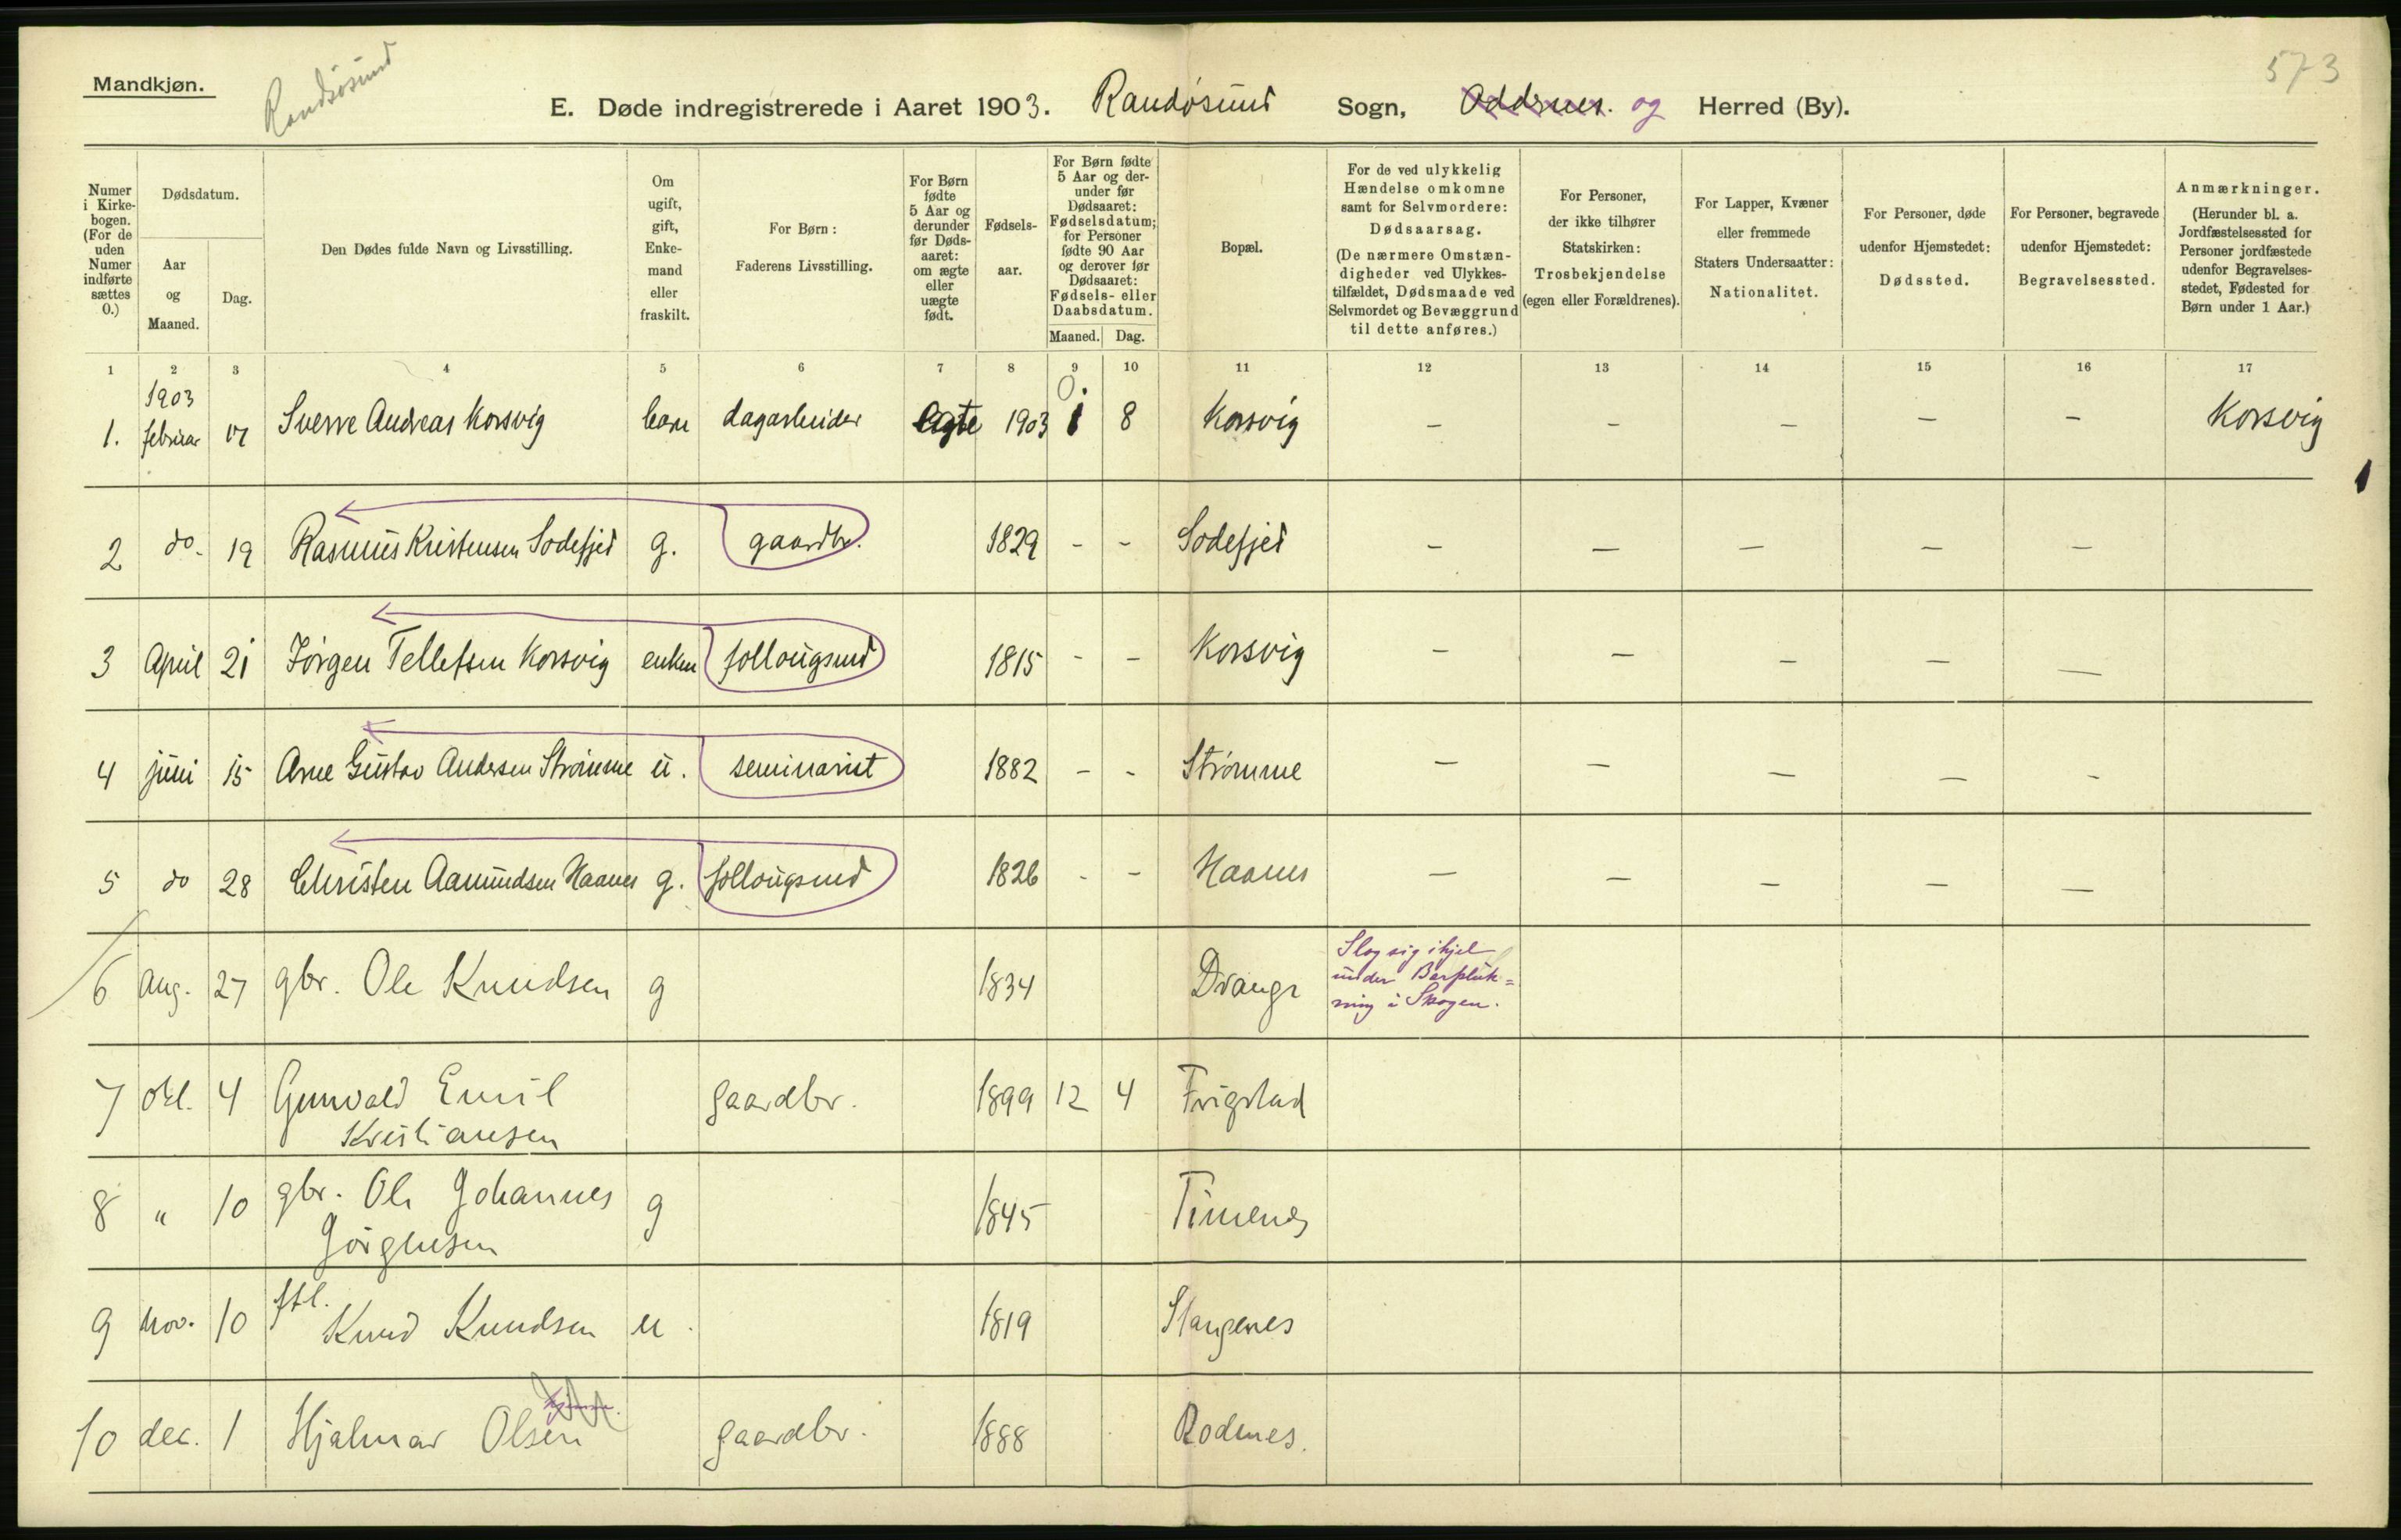 Mandkjøn.
Randøsund
573
E. Døde indregistrerede i Aaret 1903. Randøsund Sogn, Oddernes. og Herred (By).
Numer i Kirkebogen. (For de uden Numer indførte sættes 0.)
Dødsdatum.
Aar og Maaned.
Dag.
Den Dødes fulde Navn og Livsstilling.
Om ugift, gift, Enkemand eller fraskilt.
For Børn: Faderens Livsstilling.
For Børn fødte 5 Aar og derunder før Dødsaaret: om ægte eller uægte født.
Fødselsaar.
For Børn fødte 5 Aar og derunder før Dødsaaret: Fødselsdatum; for Personer fødte 90 Aar og derover før Dødsaaret: Fødsels- eller Daabsdatum.
Maaned. Dag.
Bopæl.
For de ved ulykkelig Hændelse omkomne samt for Selvmordere: Dødsaarsag. (De nærmere Omstændigheder ved Ulykkestilfældet, Dødsmaade ved Selvmordet og Bevæggrund til dette anføres.)
For Personer, der ikke tilhører Statskirken: Trosbekjendelse (egen eller Forældrenes).
For Lapper, Kvæner eller fremmede Staters Undersaatter: Nationalitet.
For Personer, døde udenfor Hjemstedet: Dødssted.
For Personer, begravede udenfor Hjemstedet: Begravelsessted.
Anmærkninger. (Herunder bl. a. Jordfæstelsessted for Personer jordfæstede udenfor Begravelsesstedet, Fødested for Børn under 1 Aar.)
1 2 3 4 5 6 7 8 9 10 11 12 13 14 15 16 17
1903
1. februar 17 Sverre Andreas Korsvig barn dagarbeider Ægte 1903 1 8 Korsvig – – – – – Korsvig
2 do. 19 Rasmus Kristensen Sodefjed g. gaardbr. 1829 - - Sodefjed – – – – –
3 April 21 Jörgen Tellefsen Korsvig enkem follougsmd 1815 - - Korsvig – – – – –
4 juni 15 Arne Gustav Andersen Strømme u. seminarist 1882 - - Strømme – – – – –
5 do 28 Christen Aamundsen Haanes g. follougsmd 1826 - - Haanes – – – – –
6 Aug. 27 gbr. Ole Knudsen g 1834 Drange Slog sig ihjel
under Bærpluk=
ning i Skogen.
7 okt. 4 Gunvald Emil gaardbr. 1899 12 4 Frigstad
Kristiansen
8 " 10 gbr. Ole Johannes g 1845 Timenes
Jörgensen
9 nov. 10 ftl. Knud Knudsen u. 1819 Stangenes
10 dec. 1 Hjalmar Olsen gaardbr. 1888 Rodenes.